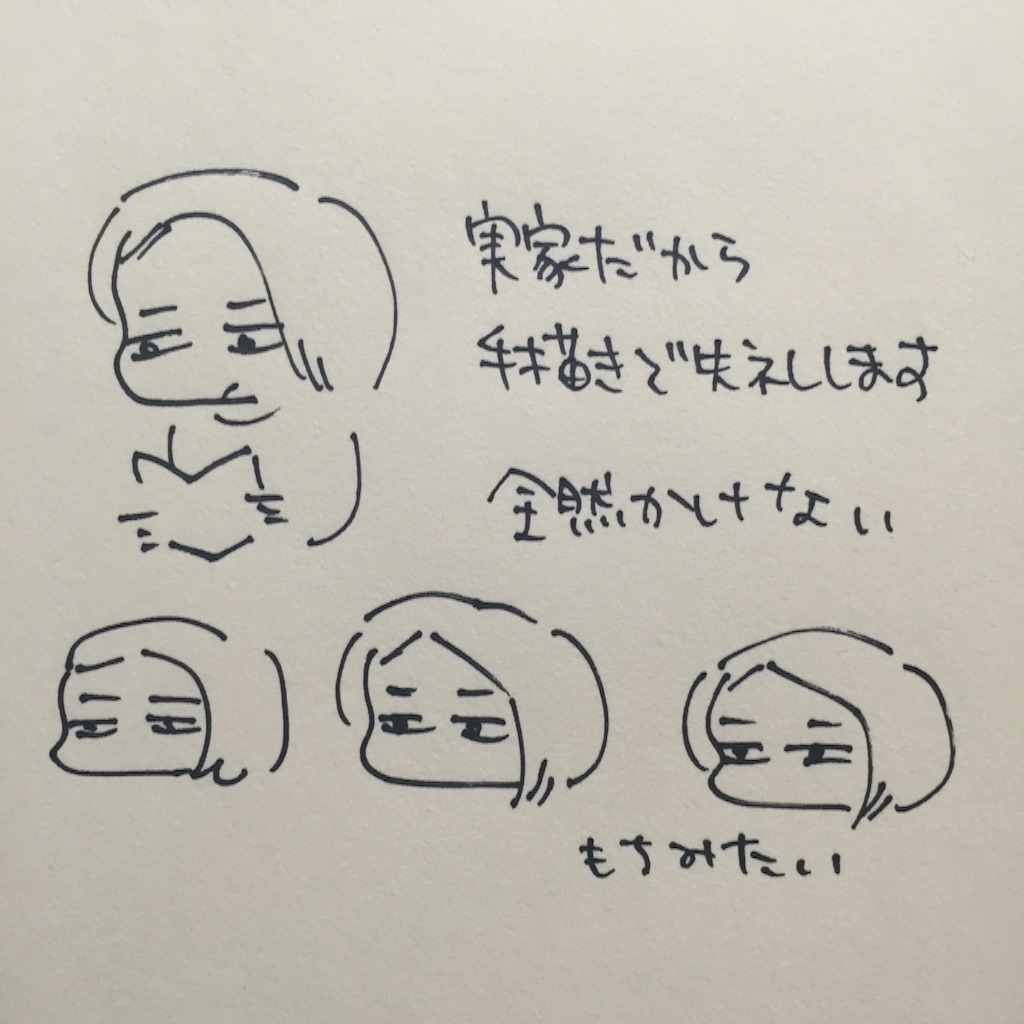 実家だから
手描きで失礼します
全然かけない
もちみたい